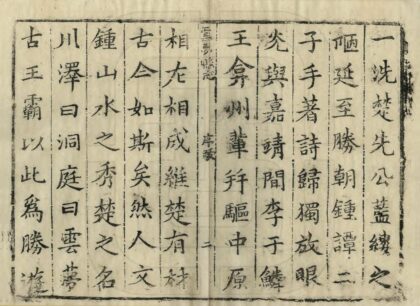 一洗楚先公藍縷之
陋延至勝朝鍾譚二
子手著詩歸獨放眼
光與嘉靖間李于鱗
王弇州輩幷驅中原
序
二
相左相成維楚有材
古今如斯矣然人文
鍾山水之秀楚之名
川澤曰洞庭曰雲夢
古王霸以此爲勝遊